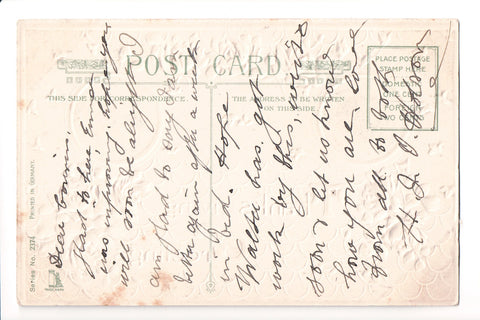 POST CARD
THIS SIDE FOR CORRESPONDENCE.
THE ADDRESS TO BE WRITTEN
ON THIS SIDE.
PLACE POSTAGE
STAMP HERE
DOMESTIC
ONE CENT
FOREIGN
TWO CENTS
Series No. 2374
PRINTED IN GERMANY.
Dear Cousin,
Glad to hear
was improving. hope you
will soon be alright. I
am glad to say Jay
better again after a week
in bed. Hope
Walter has got
work by this, write
soon & let us know
how you are. Love
from all to both
H. J. P.